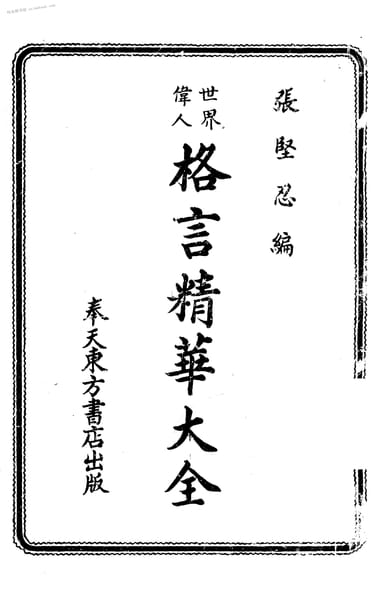 張堅忍編
世界
偉人
格言精華大全
奉天東方書店出版